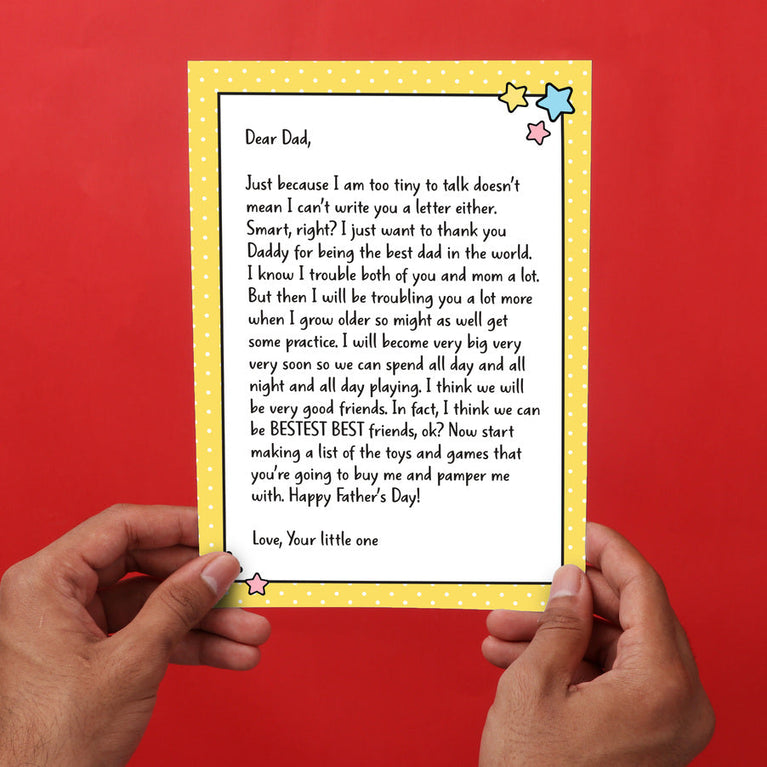 Dear Dad,
Just because I am too tiny to talk doesn't
mean I can't write you a letter either.
Smart, right? I just want to thank you
Daddy for being the best dad in the world.
I know I trouble both of you and mom a lot.
But then I will be troubling you a lot more
when I grow older so might as well get
some practice. I will become very big very
very soon so we can spend all day and all
night and all day playing. I think we will
be very good friends. In fact, I think we can
be BESTEST BEST friends, ok? Now start
making a list of the toys and games that
you're going to buy me and pamper me
with. Happy Father's Day!
Love, Your little one